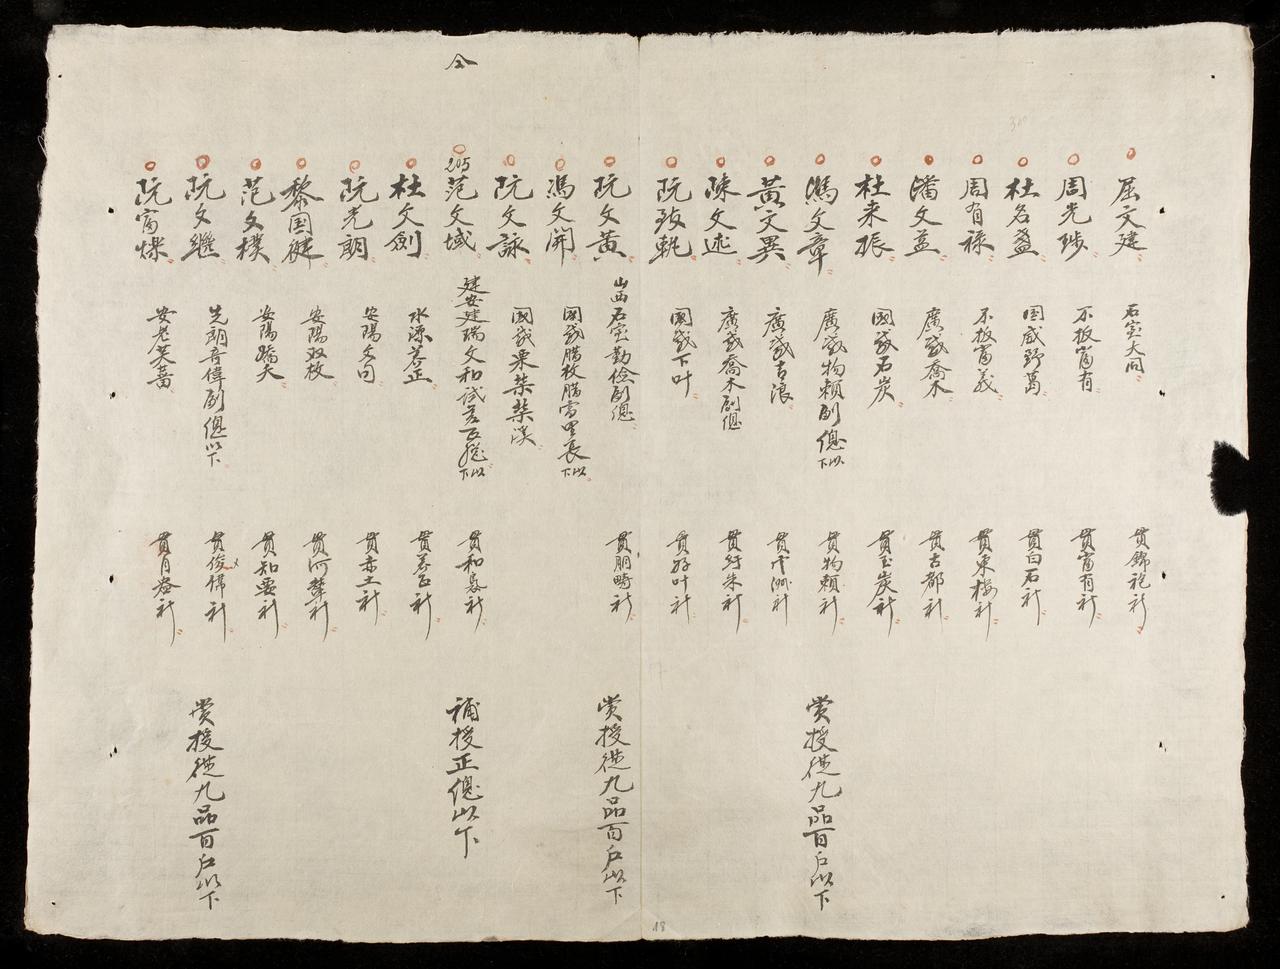 屈文建 石室大同 貫錦袍社
周光陟 不拔富有 貫富有社
杜名盞 国威野萬 貫白石社
周有祿 不拔富義 貫東樓社
潘文益 廣威喬木 貫古都社
杜来振 國威石炭 貫玉炭社
馮文章 廣威物賴副總以下 貫物賴社 賞授從九品百户以下
黃文異 廣威吉浪 貫雲洲社
陳文述 廣威喬木副總 貫社
阮玫軏 國威下叶 貫好叶社
阮文黃 山西石室勤儉副總 貫朋疇社 賞授從九品百户以下
馮文開 國威勝枚勝富里長以下
阮文詠 國威栗柴柴溪
仝
205
范文域 建安建瑞文和試差正總以下 貫和社 補授正總以下
杜文劍 水源茶正 貫茶正社
阮光朗 安陽文句 貫赤土社
黎国健 安陽双枚 貫阿輦社
范文樸 安陽嬌夫 貫知要社
阮文繼 先朗音偉副總以下 貫俊偉社 賞授從九品百户以下
阮富爍 安老芙蕾 貫月社
18